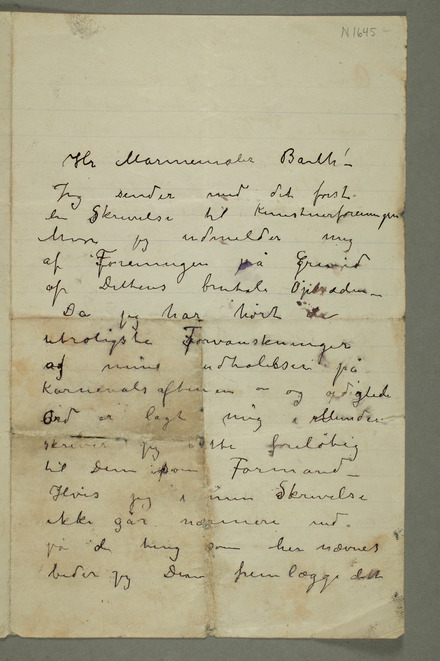 N1645
Hr Marinemaler Barth!
Jeg sender med det første
en Skrivelse til Kunstnerforeningen
hvor jeg udmelder mig
af Foreningen på Grund
af Dettens brutale Optræden
Da jeg har hørt de
utroligste Forvanskninger
af mine udtalelser på
Karnevalsaftenen – og
Ord er lagt mig i Munden
skriver jeg dette foreløbig
til Dem som Formand –
Hvis jeg i min Skrivelse
ikke går nærmere ind
på de ting som her nævnes
beder jeg Dem fremlægge dette